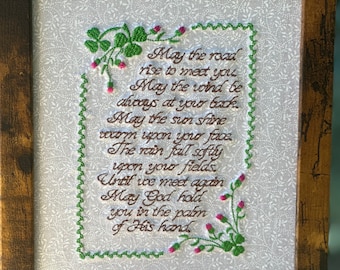 May the road
rise to meet you.
May the wind be
always at your back.
May the sun shine
warm upon your face.
The rain fall softly
upon your fields.
Until we meet again
May God hold
you in the palm
of His hand.